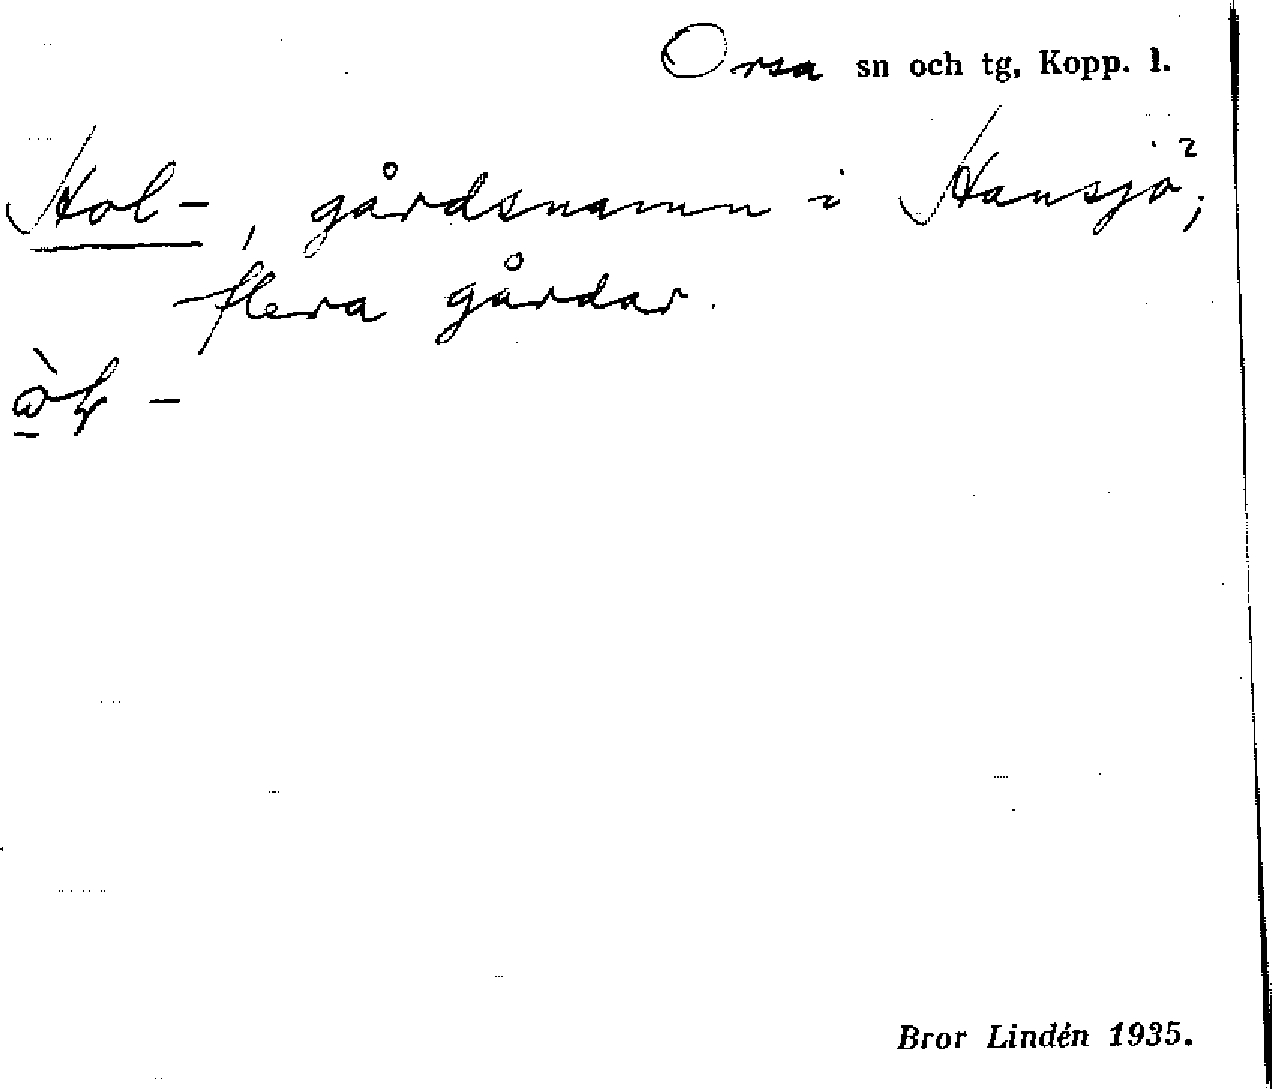 Orsa sn och tg, Kopp. l.
Hol-, gårdsnamn i Hansjö;
flera gårdar.
Bror Lindén 1935.